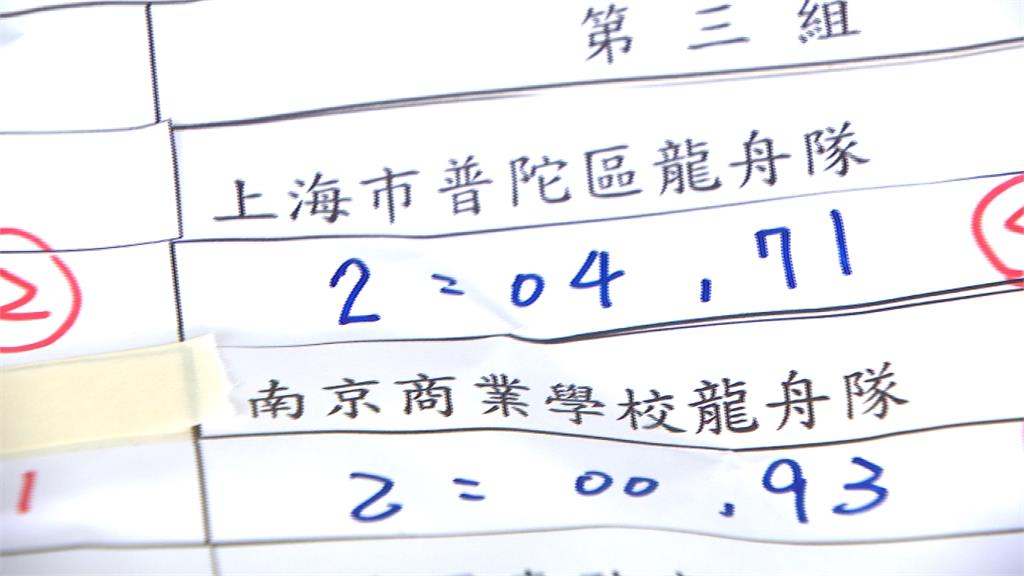 第三組
上海市普陀區龍舟隊
2 2 = 04 . 71
南京商業學校龍舟隊
1 2 = 00 . 93